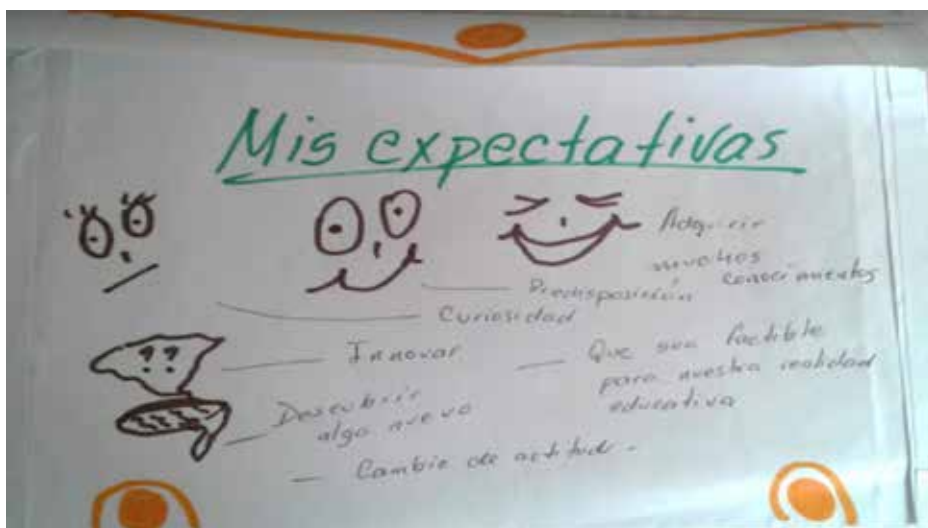 Mis expectativas
Adquirir
muchos
conocimientos
Predisposición
Curiosidad
Innovar
Que sea factible
para nuestra realidad
educativa
Descubrir
algo nuevo
Cambio de actitud.